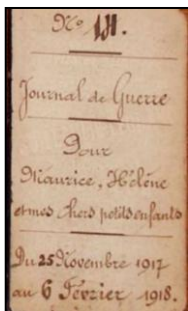 Nº 181.
Journal de Guerre
Pour
Maurice, Hélène
et mes chers petits enfants
Du 25 Novembre 1917
au 6 Février 1918.